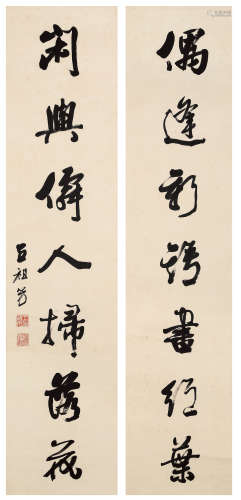 偶逢新語書紅葉
閑與僊人掃落花
石祖芬